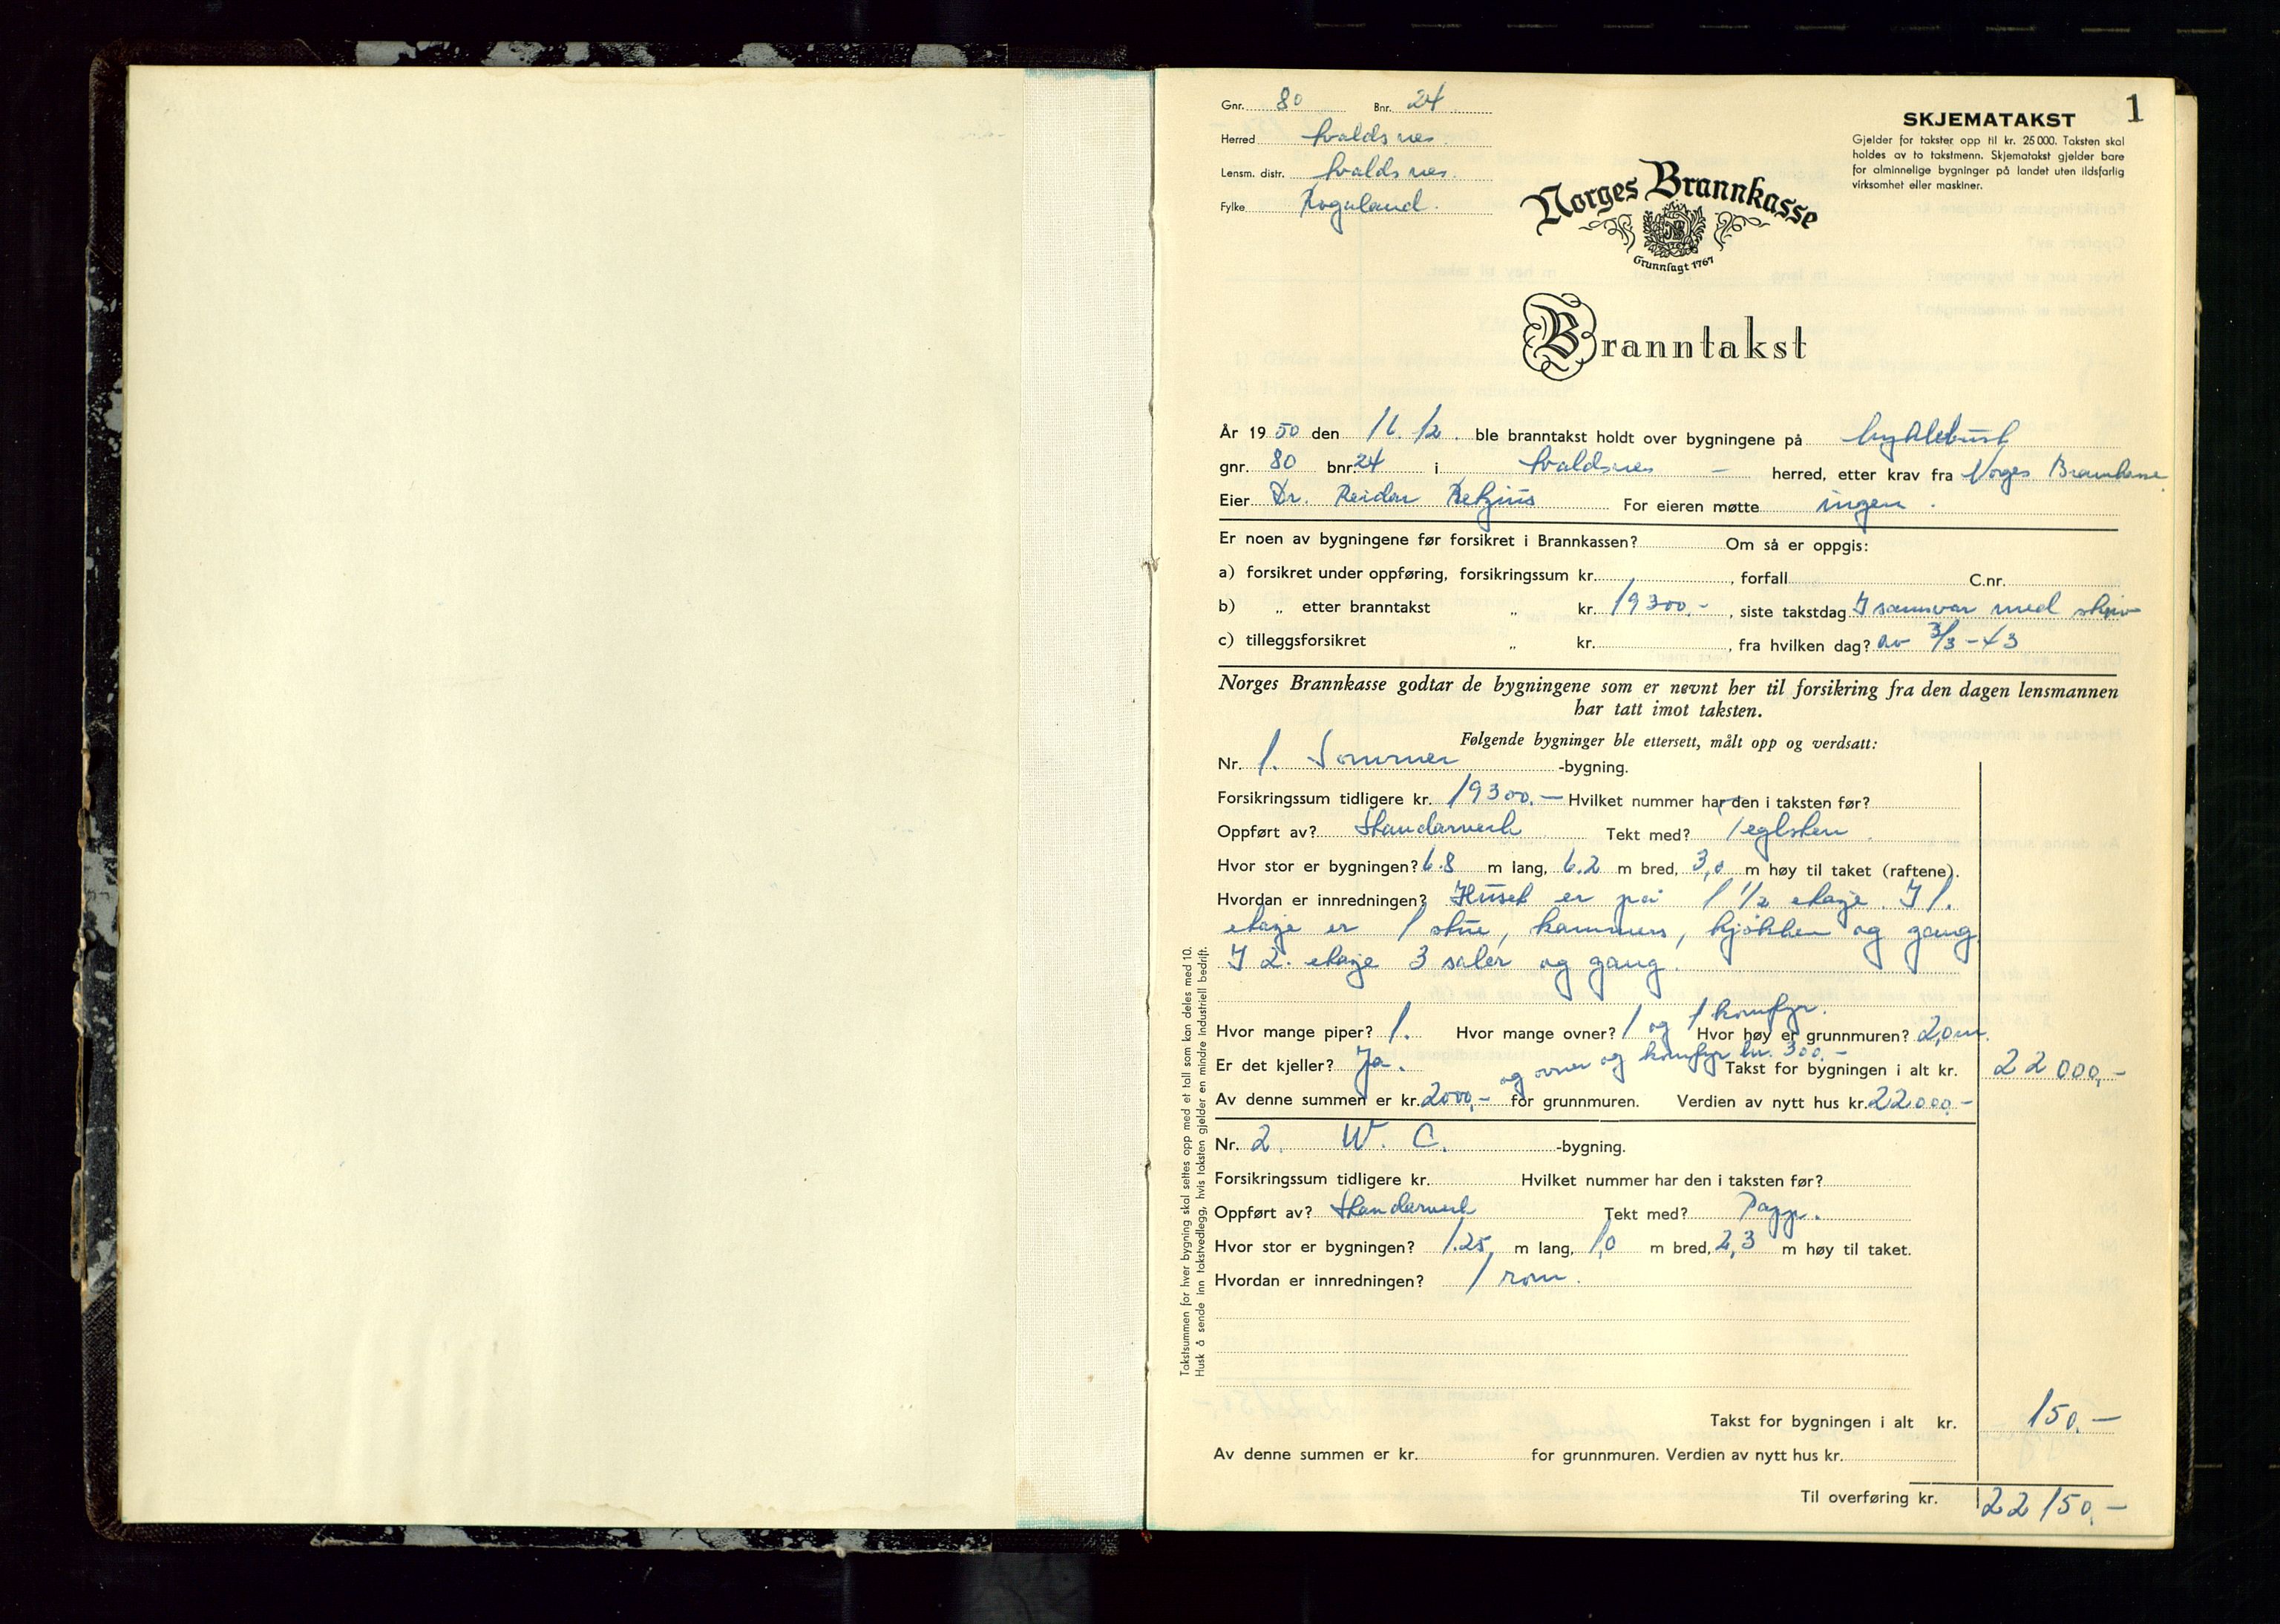 1
SKJEMATAKST
Gjelder for takster opp til kr. 25 000. Taksten skal
holdes av to takstmenn. Skjematakst gjelder bare
for alminnelige bygninger på landet uten ildsfarlig
virksomhet eller maskiner.
Gnr. 80 Bnr. 24
Herred Avaldsnes
Lensm. distr. Avaldsnes.
Fylke Rogaland.
Norges Brannkasse
Grunnlagt 1767
Branntakst
År 1950 den 16.12. ble branntakst holdt over bygningene på
gnr. 80 bnr 24 i Avaldsnes – herred, etter krav fra Norges Brannkasse
Eier Dr. Reidar Retzius For eieren møtte ingen.
Er noen av bygningene før forsikret i Brannkassen? Om så er oppgis:
a) forsikret under oppføring, forsikringssum kr. , forfall C.nr.
b) „ etter branntakst „ kr. 19300.- , siste takstdag I samsvar med skriv
c) tilleggsforsikret „ kr. , fra hvilken dag? av 3/3-43
Norges Brannkasse godtar de bygningene som er nevnt her til forsikring fra den dagen lensmannen
har tatt imot taksten.
Følgende bygninger ble ettersett, målt opp og verdsatt:
Nr. 1. Sommer -bygning.
Forsikringssum tidligere kr. 19300.– Hvilket nummer har den i taksten før?
Oppført av? Standarverk Tekt med? Teglsten.
Hvor stor er bygningen? 6.8 m lang, 6.2 m bred, 3,0 m høy til taket (raftene).
Hvordan er innredningen? Huset er på 1 1/2 etasje. I 1.
etasje er 1 stue, kammers, kjøkken og gang
I 2. etasje 3 saler og gang.
Hvor mange piper? 1. Hvor mange ovner? 1 og 1 komfyr. Hvor høy er grunnmuren? 2,0m.
Er det kjeller? Ja. og ovner og komfyr kr. 300.- Takst for bygningen i alt kr. 22000,-
Av denne summen er kr. 2000,- for grunnmuren. Verdien av nytt hus kr. 22000.-
Nr. 2. W. C. -bygning.
Forsikringssum tidligere kr. Hvilket nummer har den i taksten før?
Oppført av? Standarverk Tekt med? Papp.
Hvor stor er bygningen? 1.25 m lang, 1,0 m bred, 2,3 m høy til taket.
Hvordan er innredningen? 1 rom.
Takst for bygningen i alt kr. 150.–
Av denne summen er kr. for grunnmuren. Verdien av nytt hus kr.
Til overføring kr. 22150,-
Takstsummen for hver bygning skal settes opp med et tall som kan deles med 10.
Husk å sende inn takstvedlegg, hvis taksten gjelder en mindre industriell bedrift.